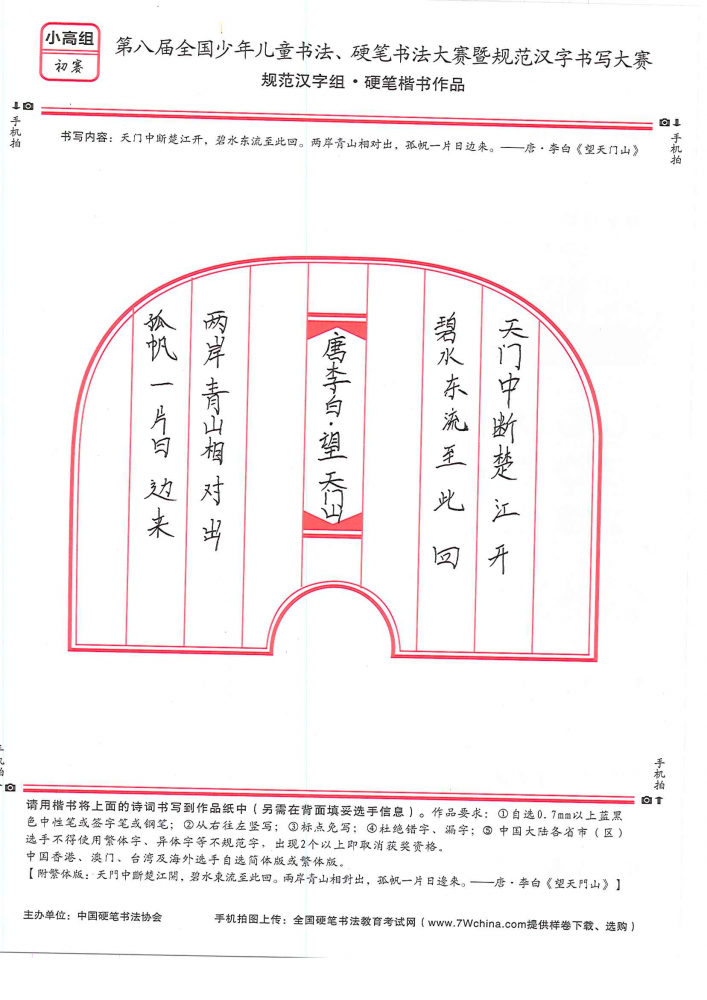 小高组
初赛
第八届全国少年儿童书法、硬笔书法大赛暨规范汉字书写大赛
规范汉字组·硬笔楷书作品
手机拍
手机拍
书写内容：天门中断楚江开，碧水东流至此回。两岸青山相对出，孤帆一片日边来。——唐·李白《望天门山》
天门中断楚江开
碧水东流至此回
唐李白·望天门山
两岸青山相对出
孤帆一片日边来
手机拍
手机拍
请用楷书将上面的诗词书写到作品纸中（另需在背面填妥选手信息）。作品要求：①自选0.7mm以上蓝黑
色中性笔或签字笔或钢笔；②从右往左竖写；③标点免写；④杜绝错字、漏字；⑤中国大陆各省市（区）
选手不得使用繁体字、异体字等不规范字，出现2个以上即取消获奖资格。
中国香港、澳门、台湾及海外选手自选简体版或繁体版。
【附繁体版：天門中斷楚江開，碧水東流至此回。兩岸青山相對出，孤帆一片日邊來。——唐·李白《望天門山》】
主办单位：中国硬笔书法协会
手机拍图上传：全国硬笔书法教育考试网（www.7Wchina.com提供样卷下载、选购）